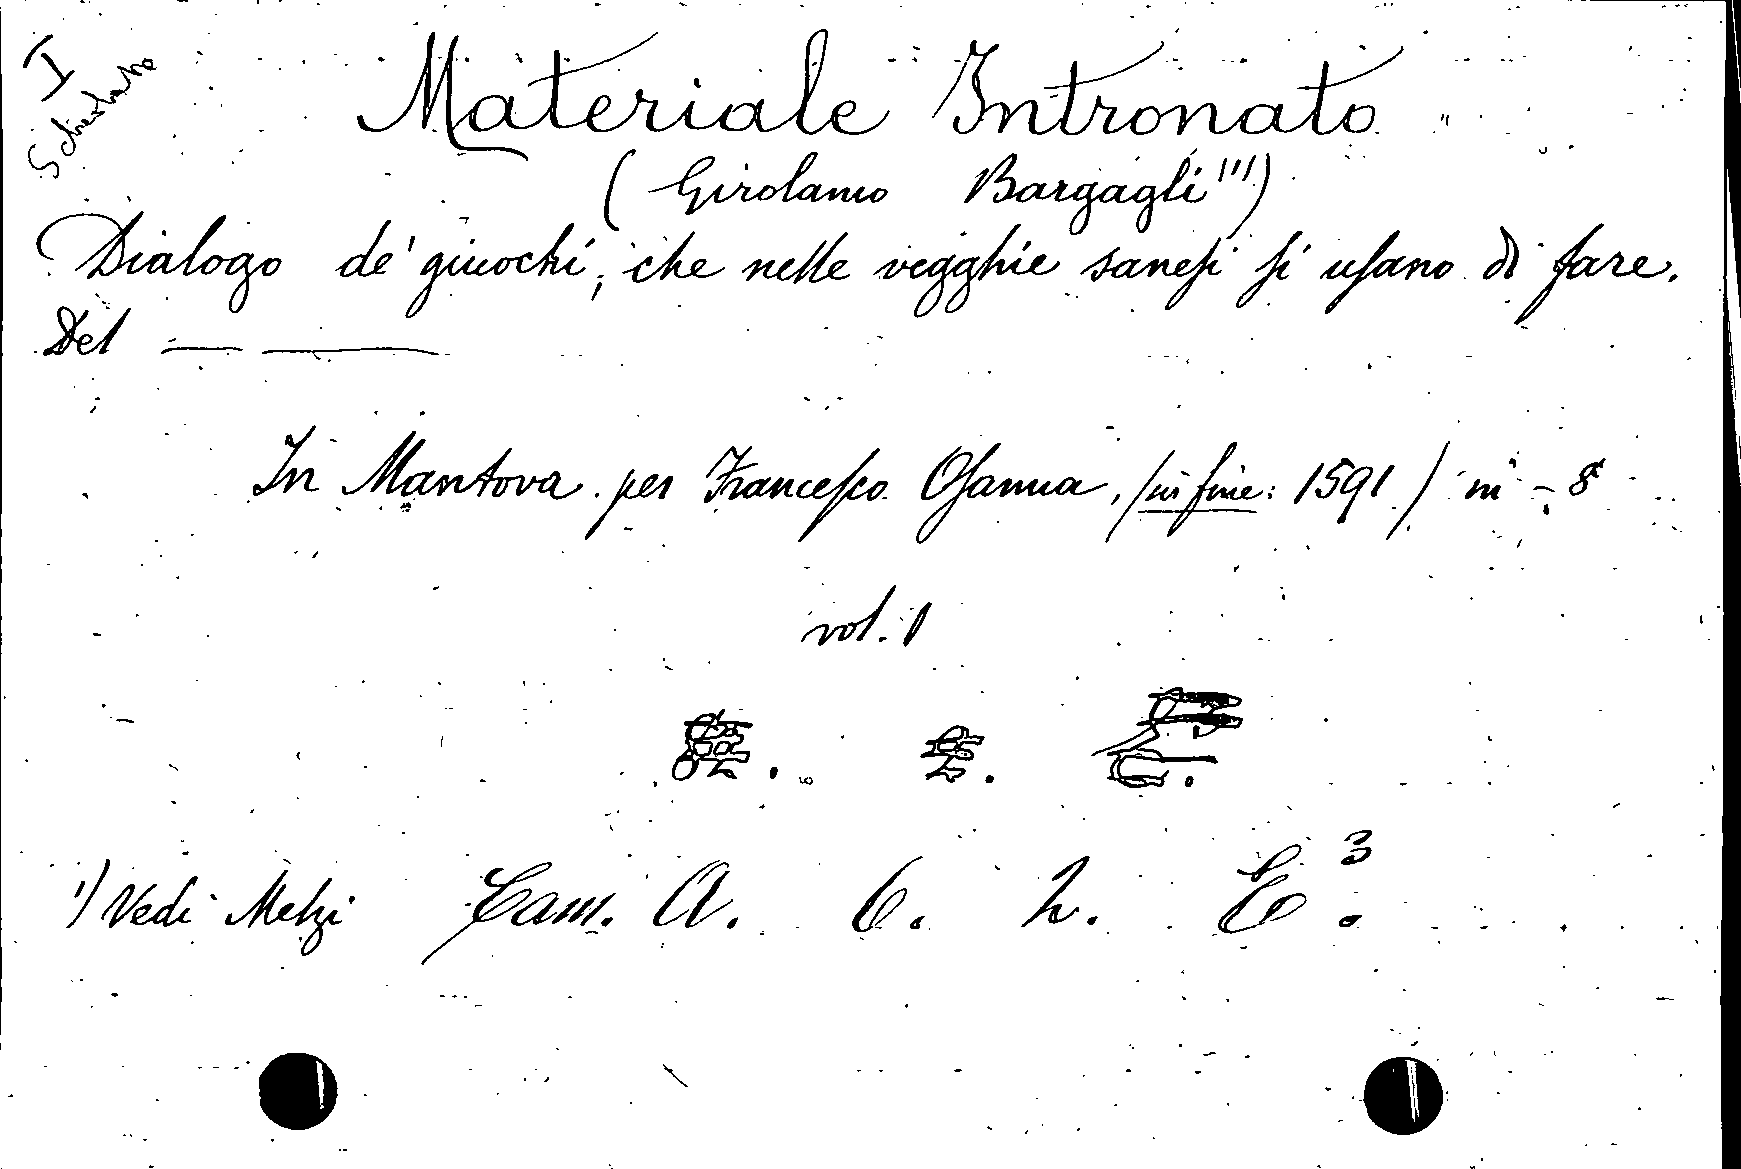 I
Schedato
Materiale Intronato
(Girolamo Bargagli ¹⁾)
Dialogo de' giuochi, che nelle vegghie sanesi si usano di fare.
Del — ——
In Mantova per Francesco Osanna, (in fine: 1591) in - 8
vol. 1
1) Vedi Melzi Cam. A. 6. 2. E³.